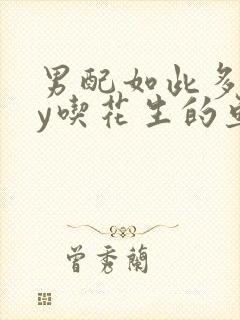 男配如此多
y喫花生的
曾秀蘭